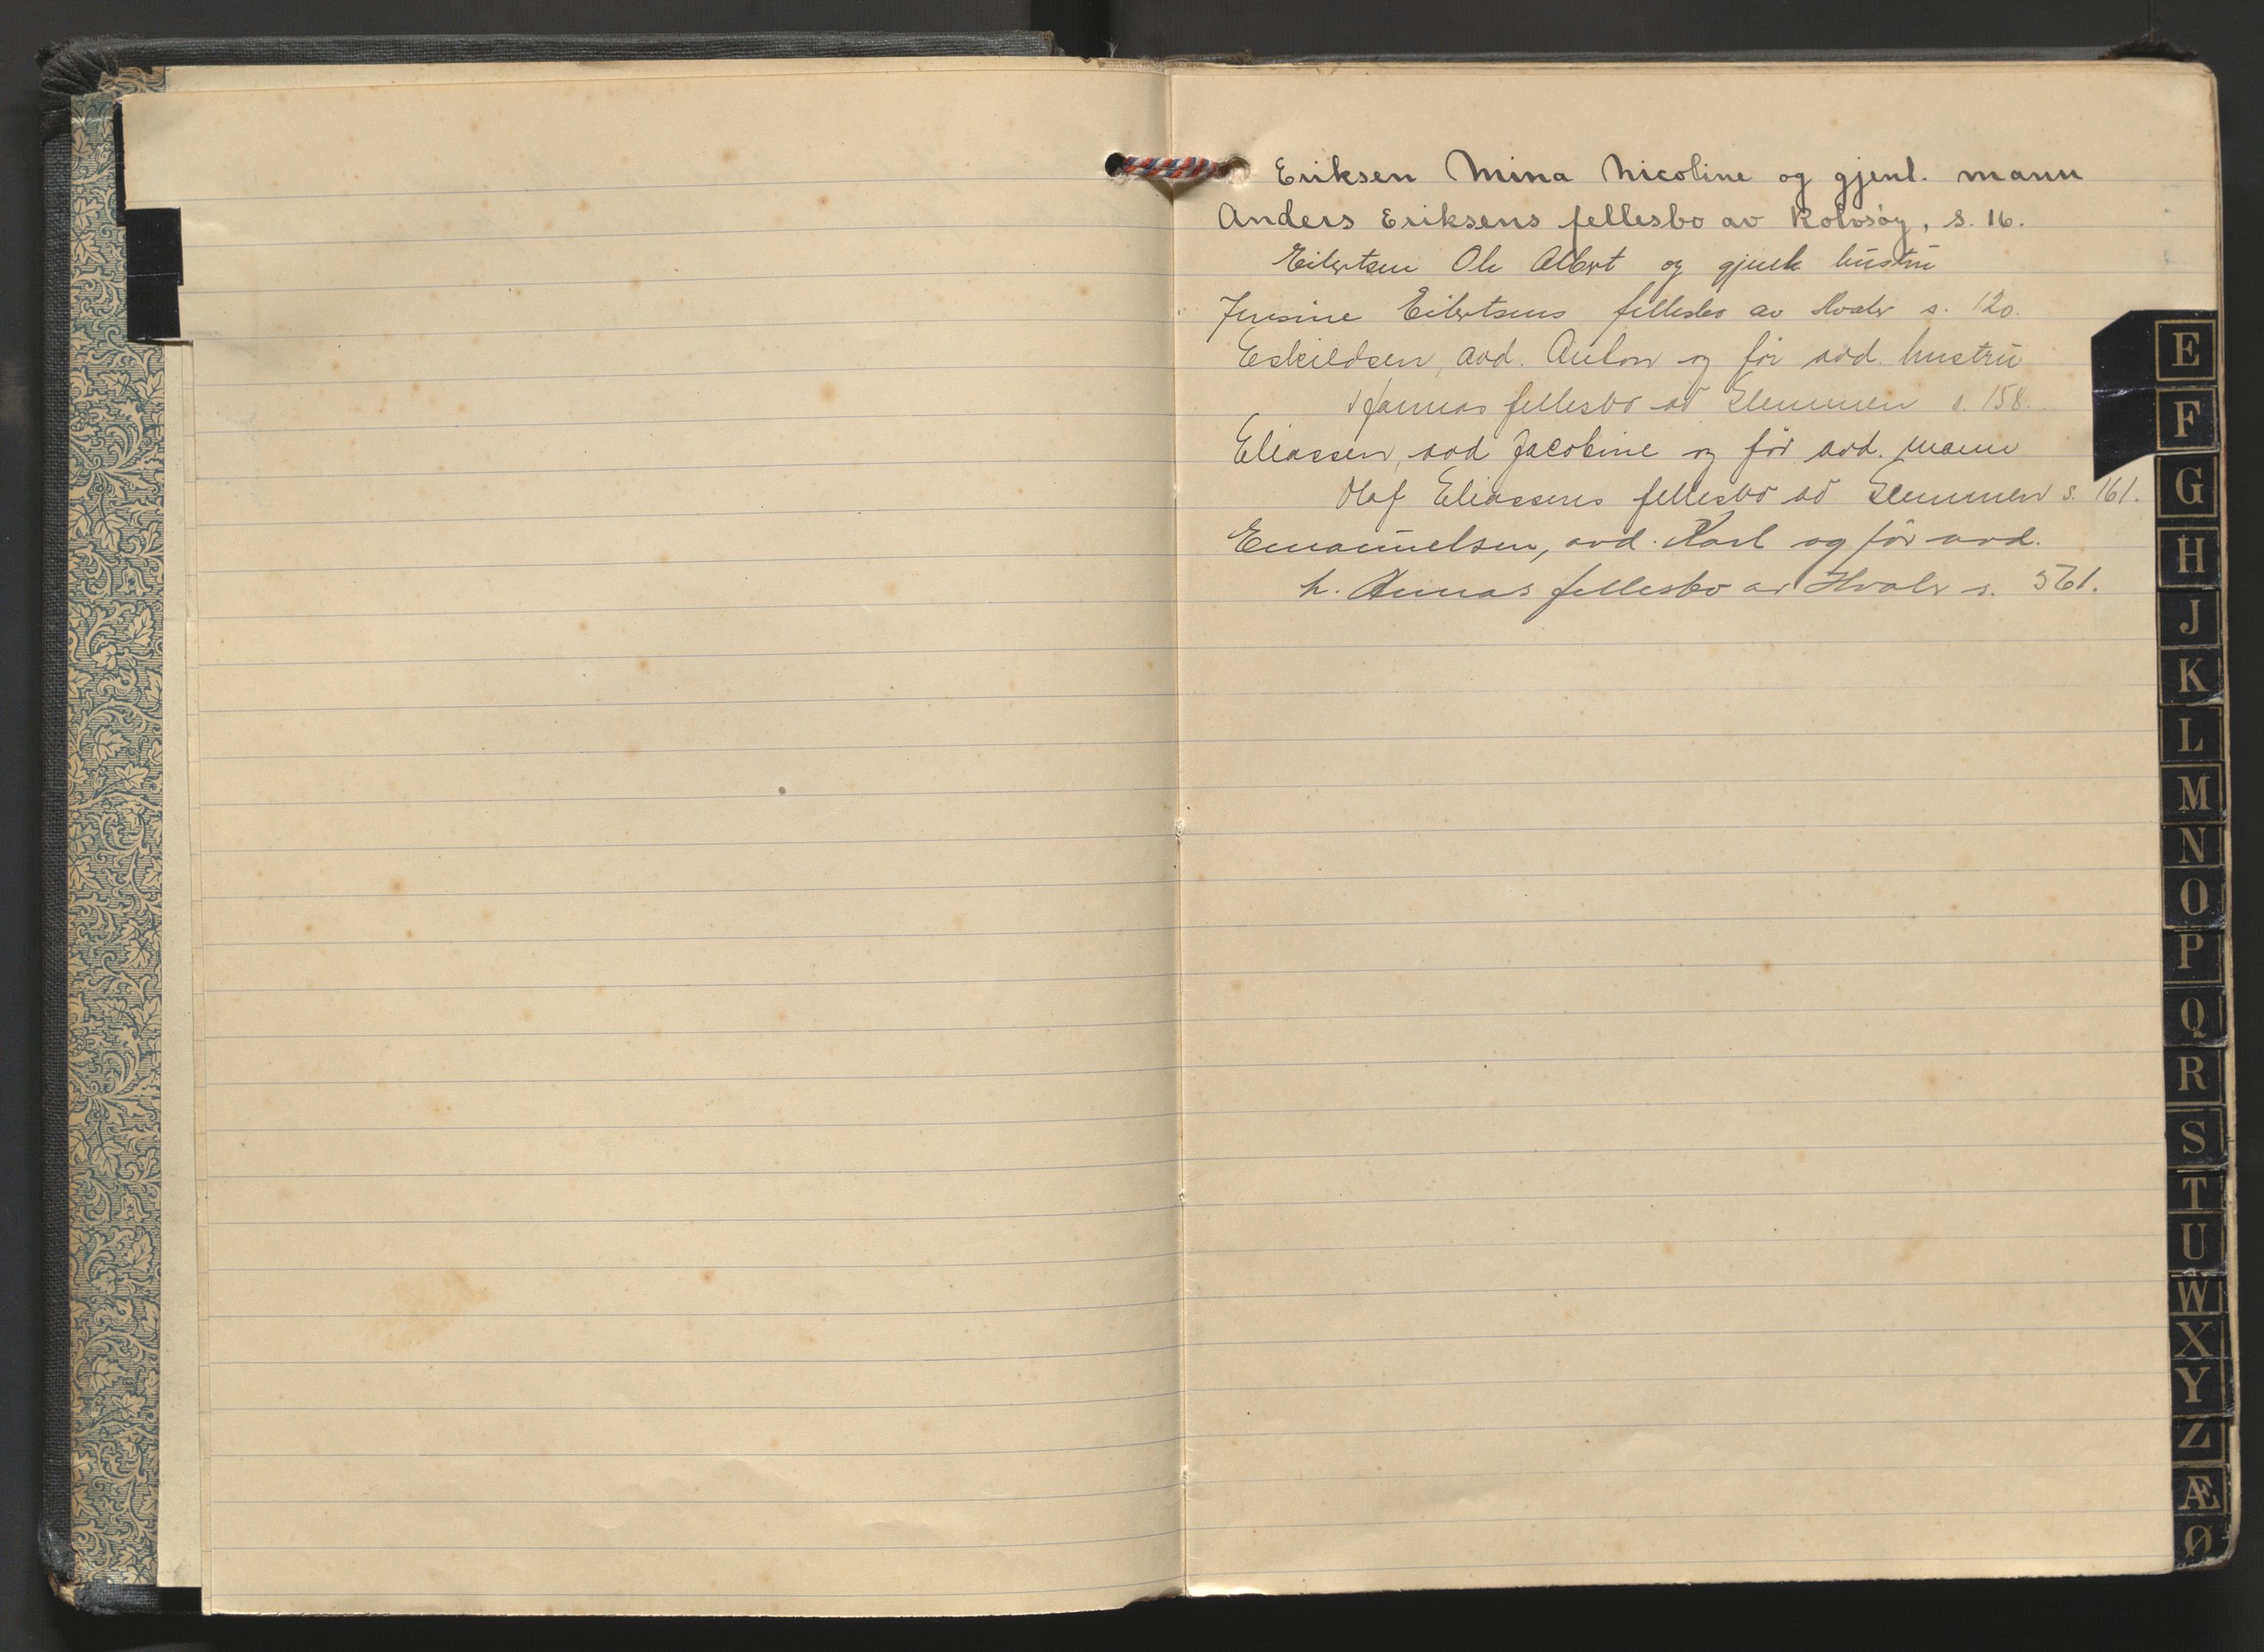 Eriksen Mina Nicoline og gjenl. mann
Anders Eriksens fellesbo av Rolvsøy, s. 16.
Eilertsen Ole Albert og gjenl. hustru
Jensine Eilertsens fellesbo av Hvaler s. 120.
Eskildsen, avd. Anton og før avd. hustru
Hannas fellesbo av Glemmen s. 158.
Eliassen, avd Jacobine og før avd. mann
Olaf Eliassens fellesbo av Glemmen s. 161.
Emanuelsen, avd. Karl og før avd.
h. Annas fellesbo av Hvaler s. 561.
E
F
G
H
J
K
L
M
N
O
P
Q
R
S
T
U
W
X
Y
Z
Æ
Ø